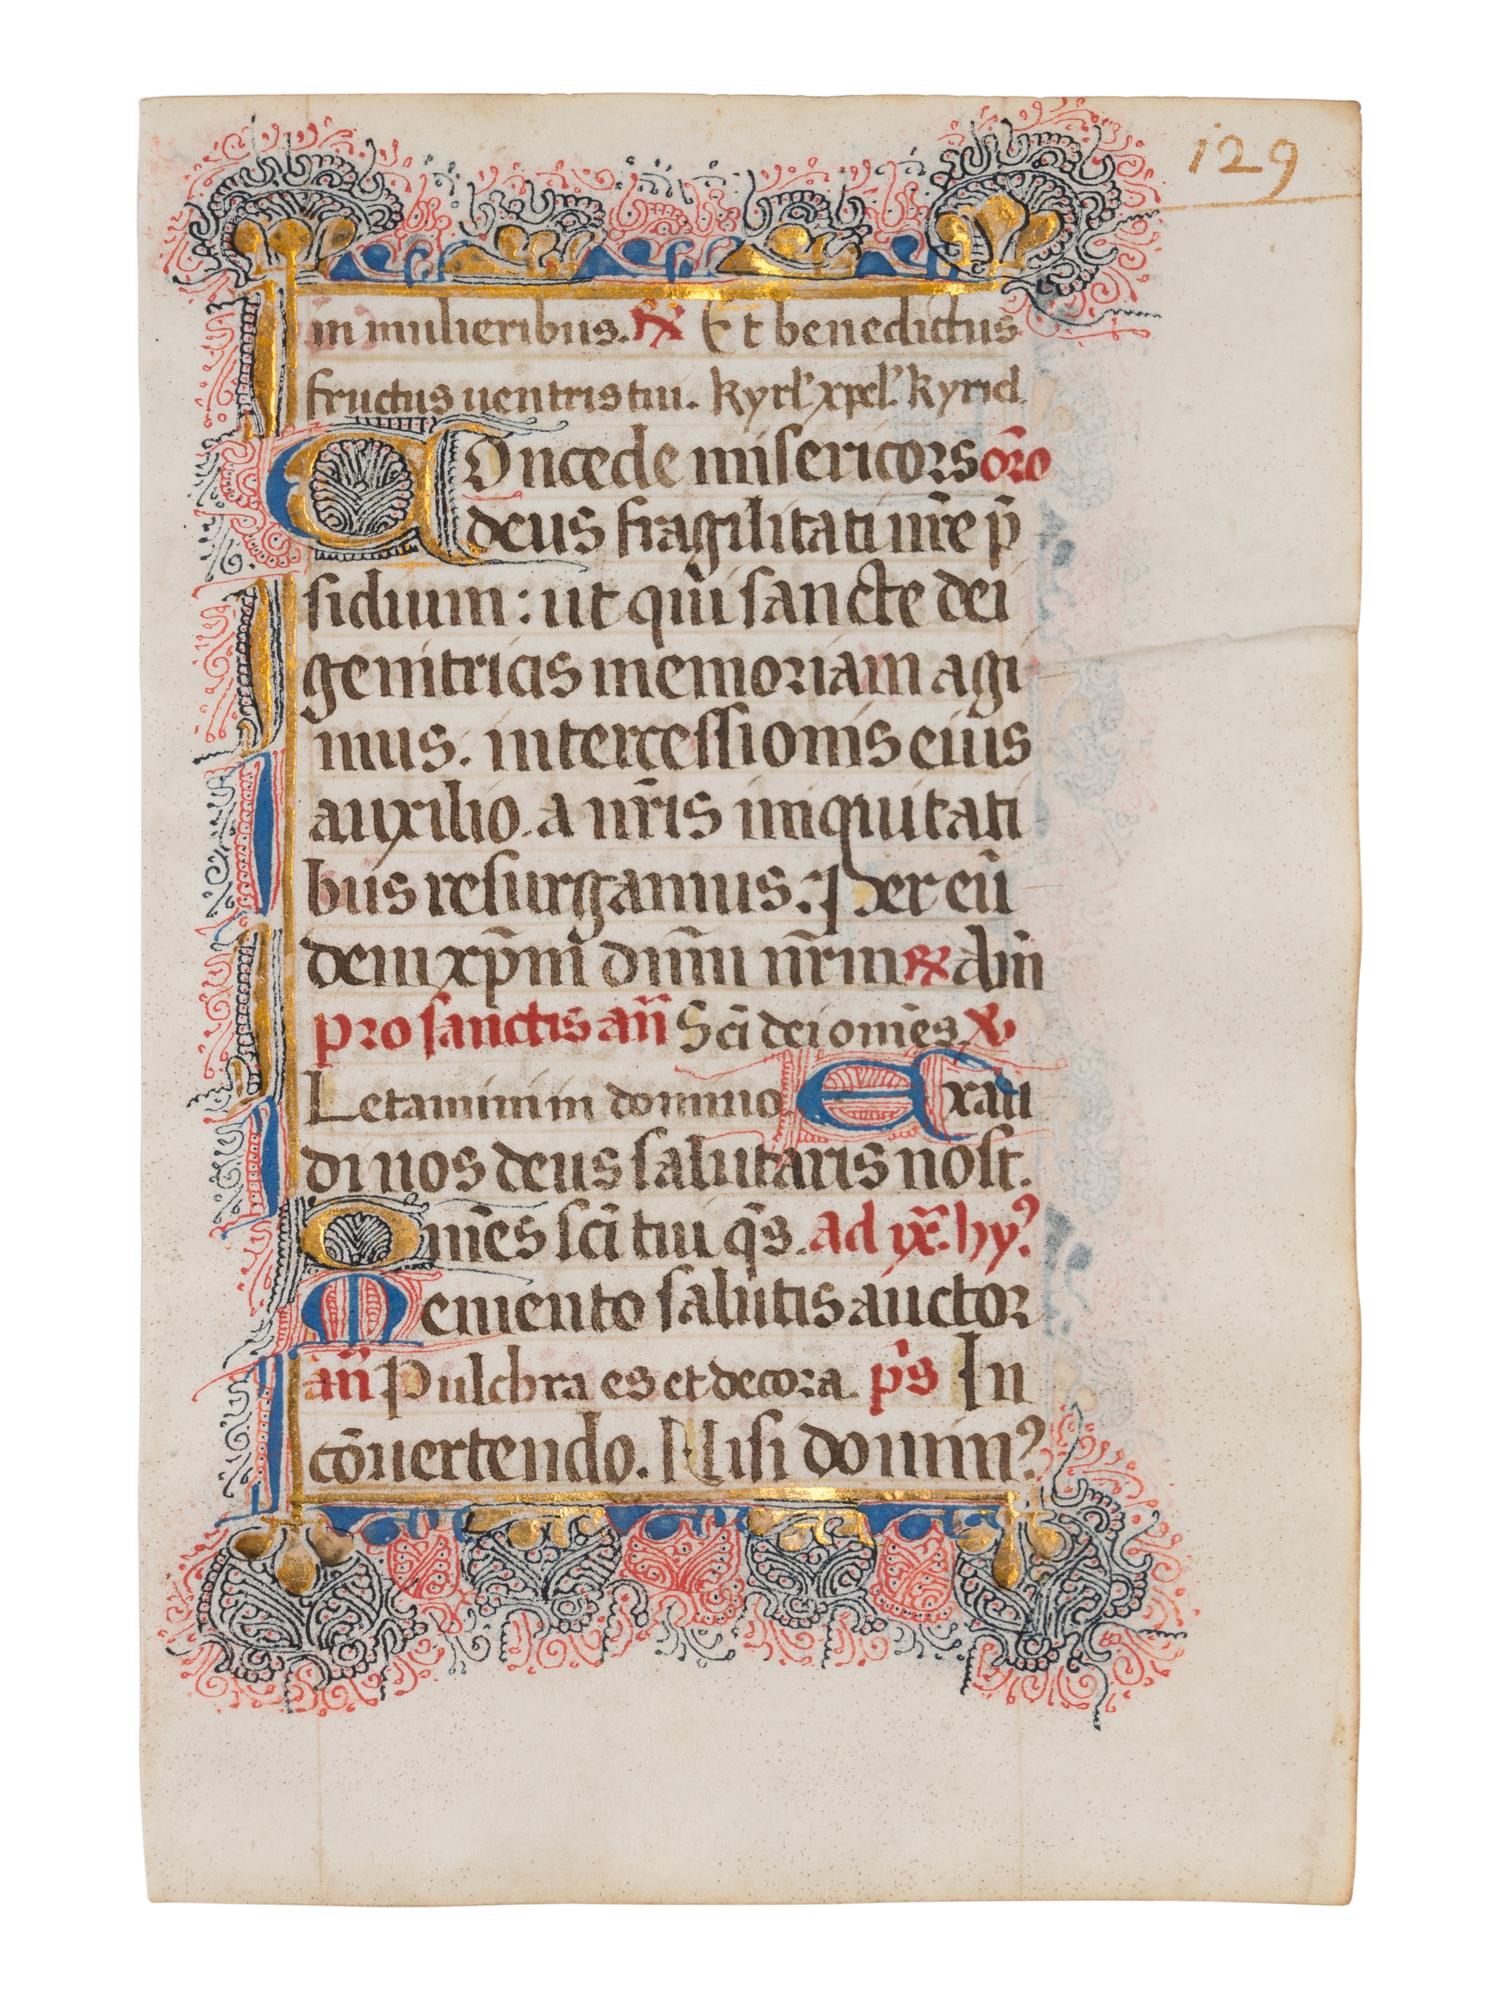 129
in mulieribus. ℟ Et benedictus
fructus uentris tui. kyrl' xpel' kyriel
Concede misericors oro
deus fragilitati nr̄e p̄
sidium: ut qui sancte dei
genitricis memoriam agi
mus. intercessionis eius
auxilio a nr̄is iniquitati
bus resurgamus: Per eū
dem xp̄m dn̄m nr̄m ℟ am̄
pro sanctis an̄ Sci dei om̄es ℣
Letamini in domino Exau
di nos deus salutaris nost.
Om̄es sc̄i tui qs̄. ad ix. hy.
Memento salutis auctor
an̄ Pulchra es et decora. ps In
cōuertendo. Nisi domin⁹